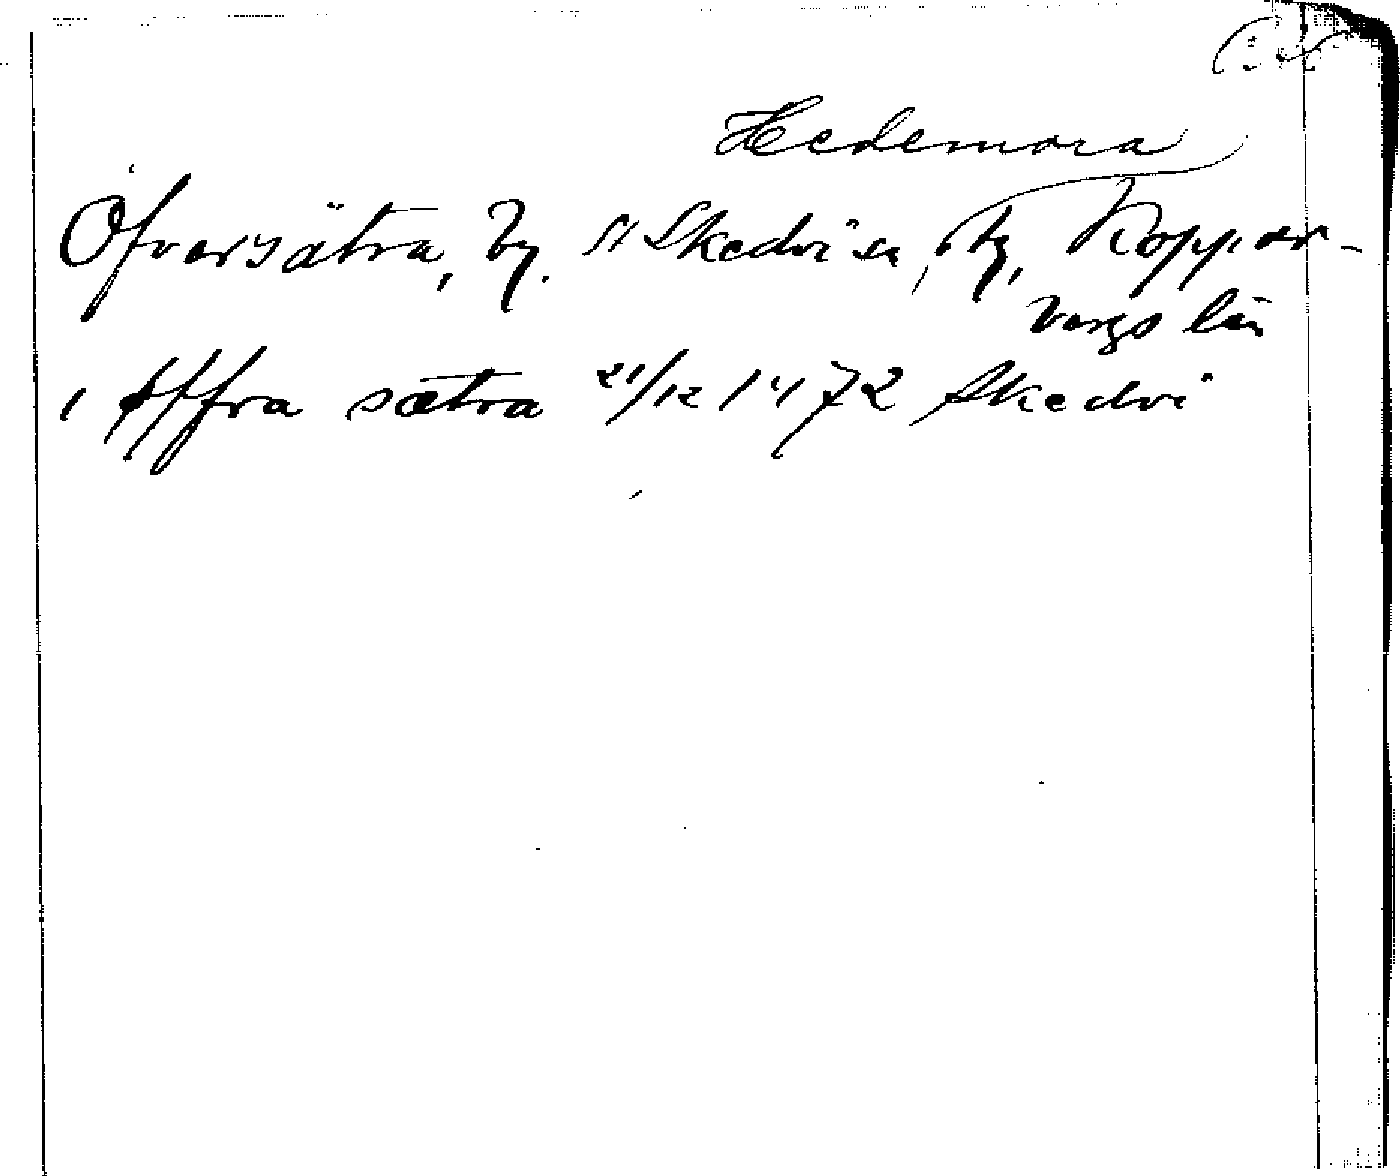 Hedemora
Öfversätra, by. St Skedvi sn, hg, Koppar-
bergs län
i øffra sætra 21/12 1472 Skedvi